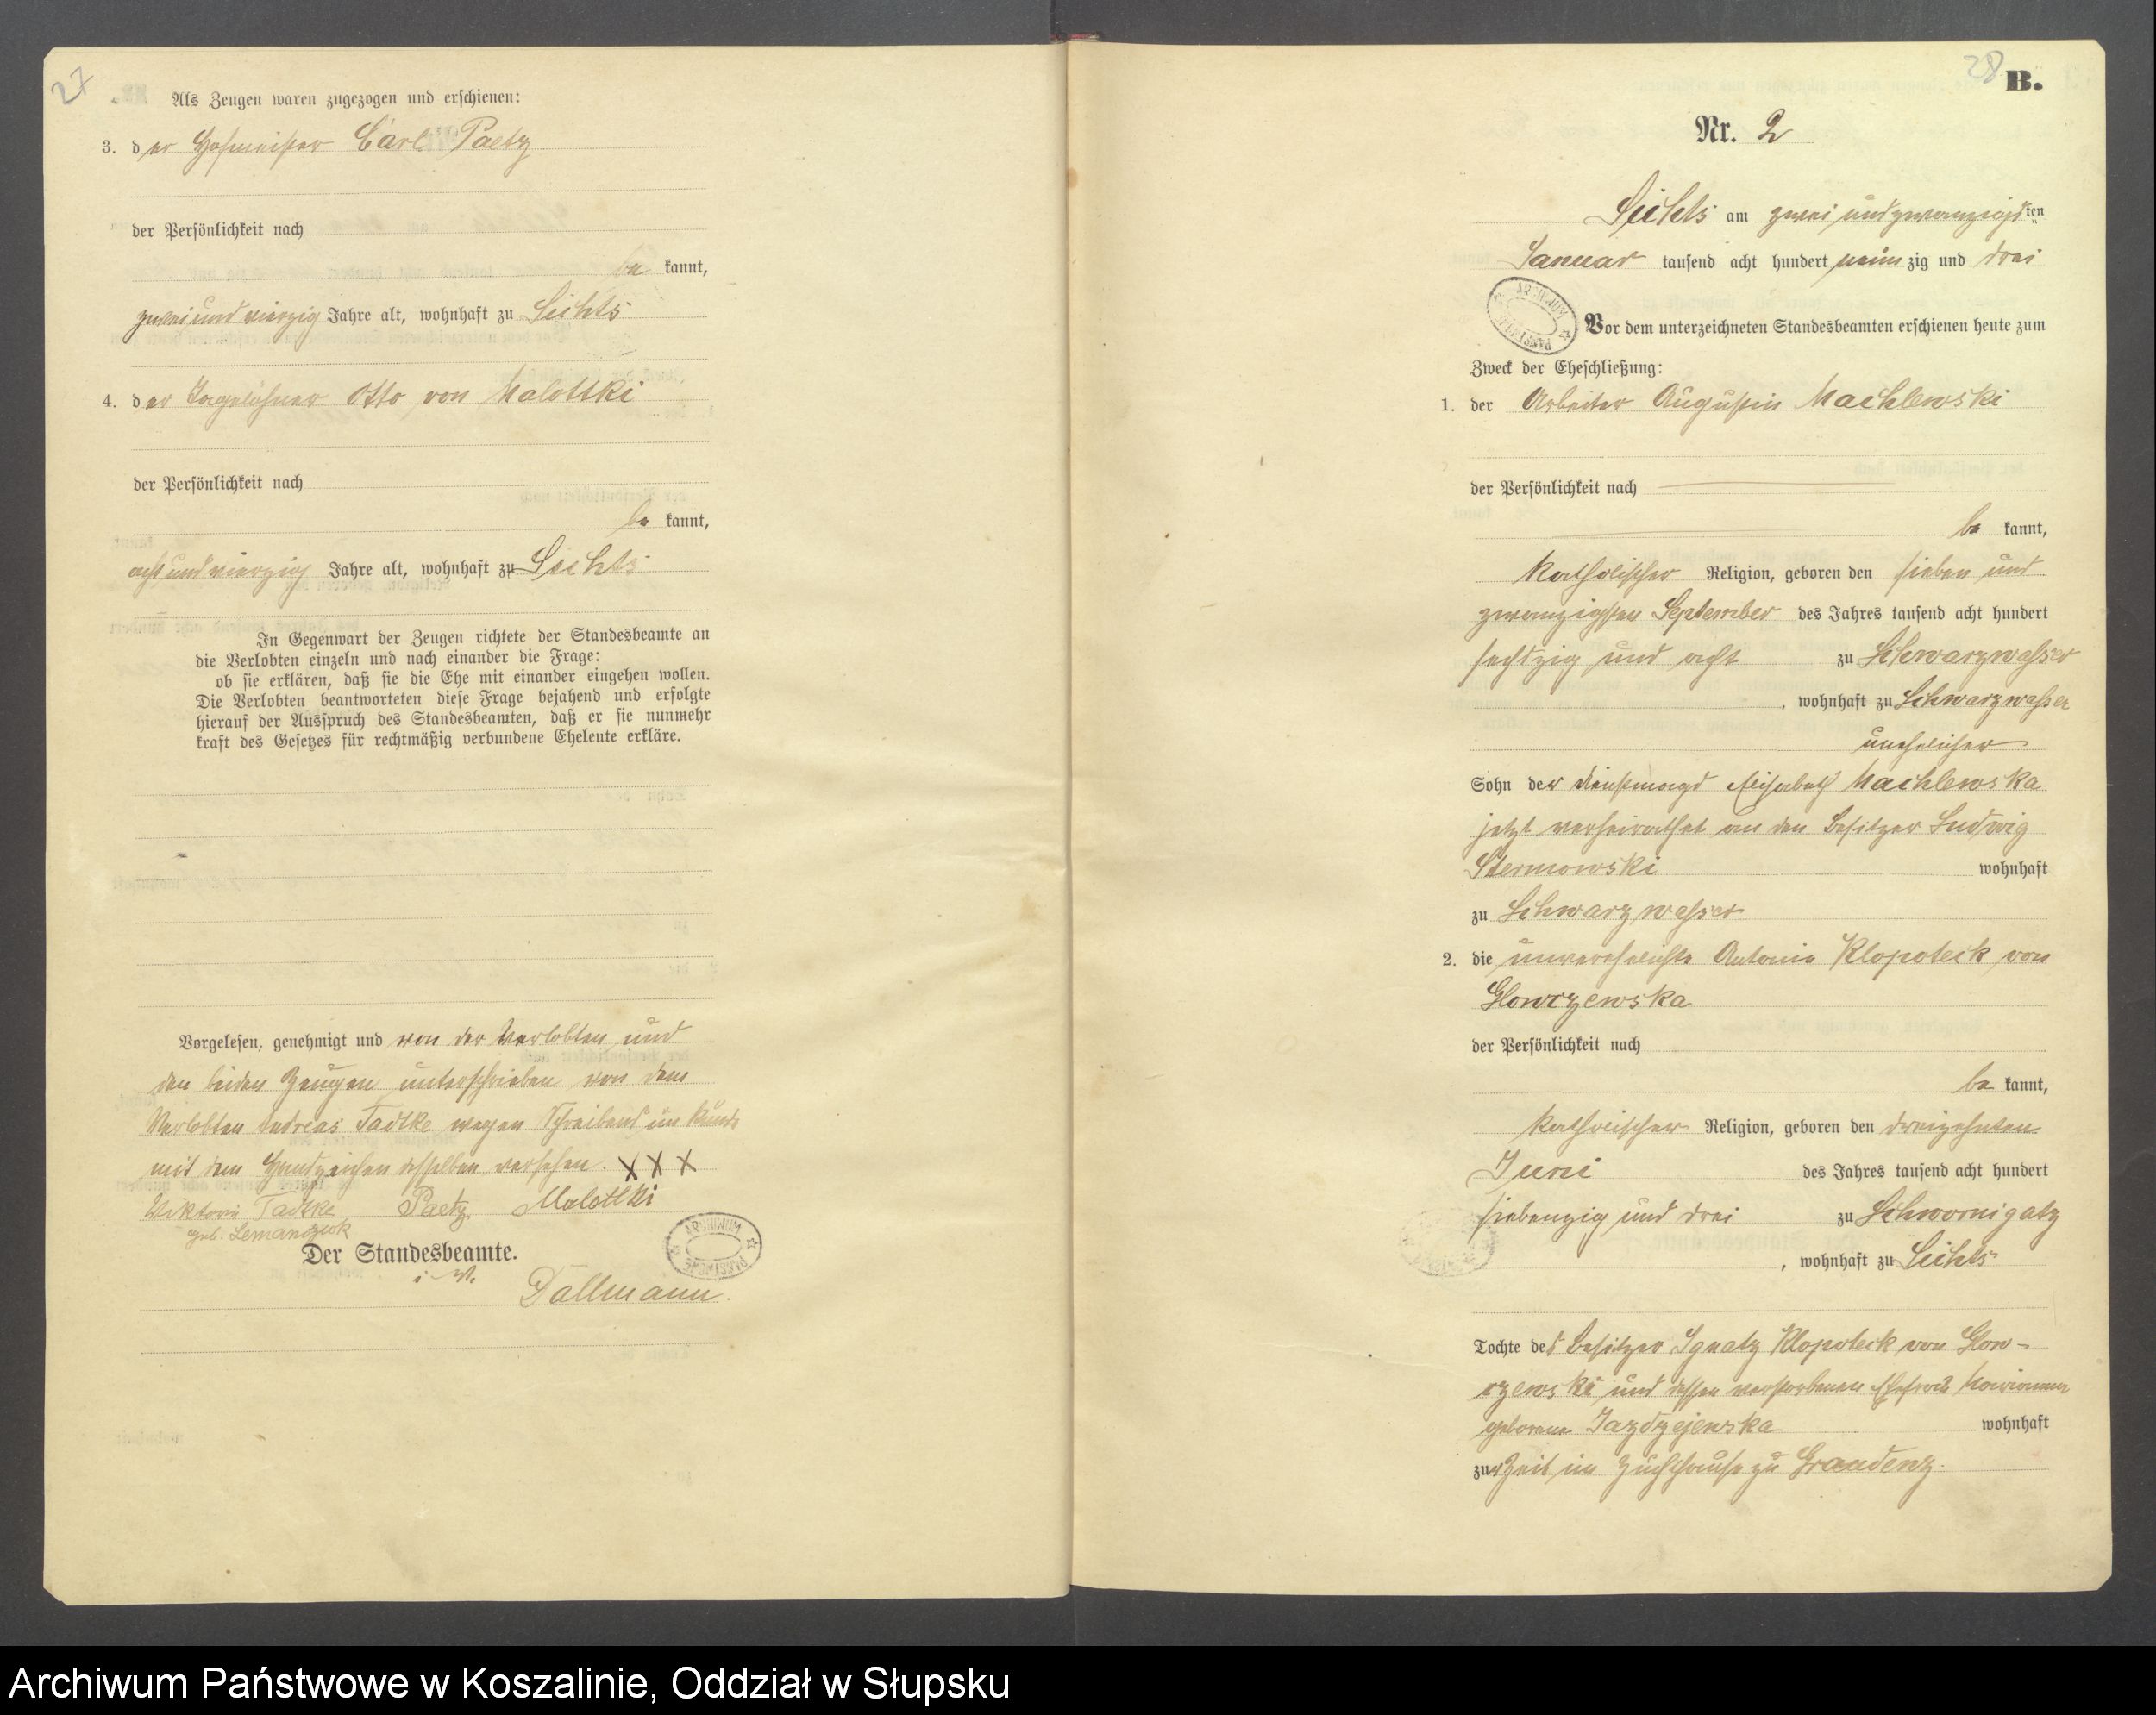 27
Als Zeugen waren zugezogen und erschienen:
3. der Hofmeister Carl Paetz
der Persönlichkeit nach
be kannt,
zwei und vierzig Jahre alt, wohnhaft zu
4. der Tagelöhner Otto von Malottki
der Persönlichkeit nach
be kannt,
acht und vierzig Jahre alt, wohnhaft zu
In Gegenwart der Zeugen richtete der Standesbeamte an
die Verlobten einzeln und nach einander die Frage:
ob sie erklären, daß sie die Ehe mit einander eingehen wollen.
Die Verlobten beantworteten diese Frage bejahend und erfolgte
hierauf der Ausspruch des Standesbeamten, daß er sie nunmehr
kraft des Gesetzes für rechtmäßig verbundene Eheleute erkläre.
Vorgelesen, genehmigt und von der Verlobten und
den beiden Zeugen unterschrieben von dem
Verlobten Andreas Tadtke wegen Schreibens
mit dem Handzeichen desselben versehen. XXX
Tadtke Paetz Malottki
geb.
Der Standesbeamte.
Dallmann.
28
B.
Nr. 2
am zwei und zwanzigsten
Januar tausend acht hundert neun zig und drei
Vor dem unterzeichneten Standesbeamten erschienen heute zum
Zweck der Eheschließung:
1. der Arbeiter Augustin Machlewski
der Persönlichkeit nach
be kannt,
katholischer Religion, geboren den sieben und
zwanzigsten September des Jahres tausend acht hundert
sechszig und acht zu Schwarzwasser
, wohnhaft zu Schwarzwasser
unehelicher
Sohn der Dienstmagd Elisabeth Machlewska
jetzt verheirathet an den Besitzer Ludwig
wohnhaft
zu Schwarzwasser
2. die unverehelichte Antonie Klopoteck von
Glowczewska
der Persönlichkeit nach
be kannt,
katholischer Religion, geboren den dreizehnten
Juni des Jahres tausend acht hundert
siebenzig und drei zu Schwornigatz
, wohnhaft zu
Tochte des Besitzer Ignatz Klopoteck von Glow-
czewski und dessen verstorbenen Ehefrau Marianna
geborene Jazdzejewska wohnhaft
zur Zeit im Zuchthause zu Graudenz.
Archiwum Państwowe w Koszalinie, Oddział w Słupsku